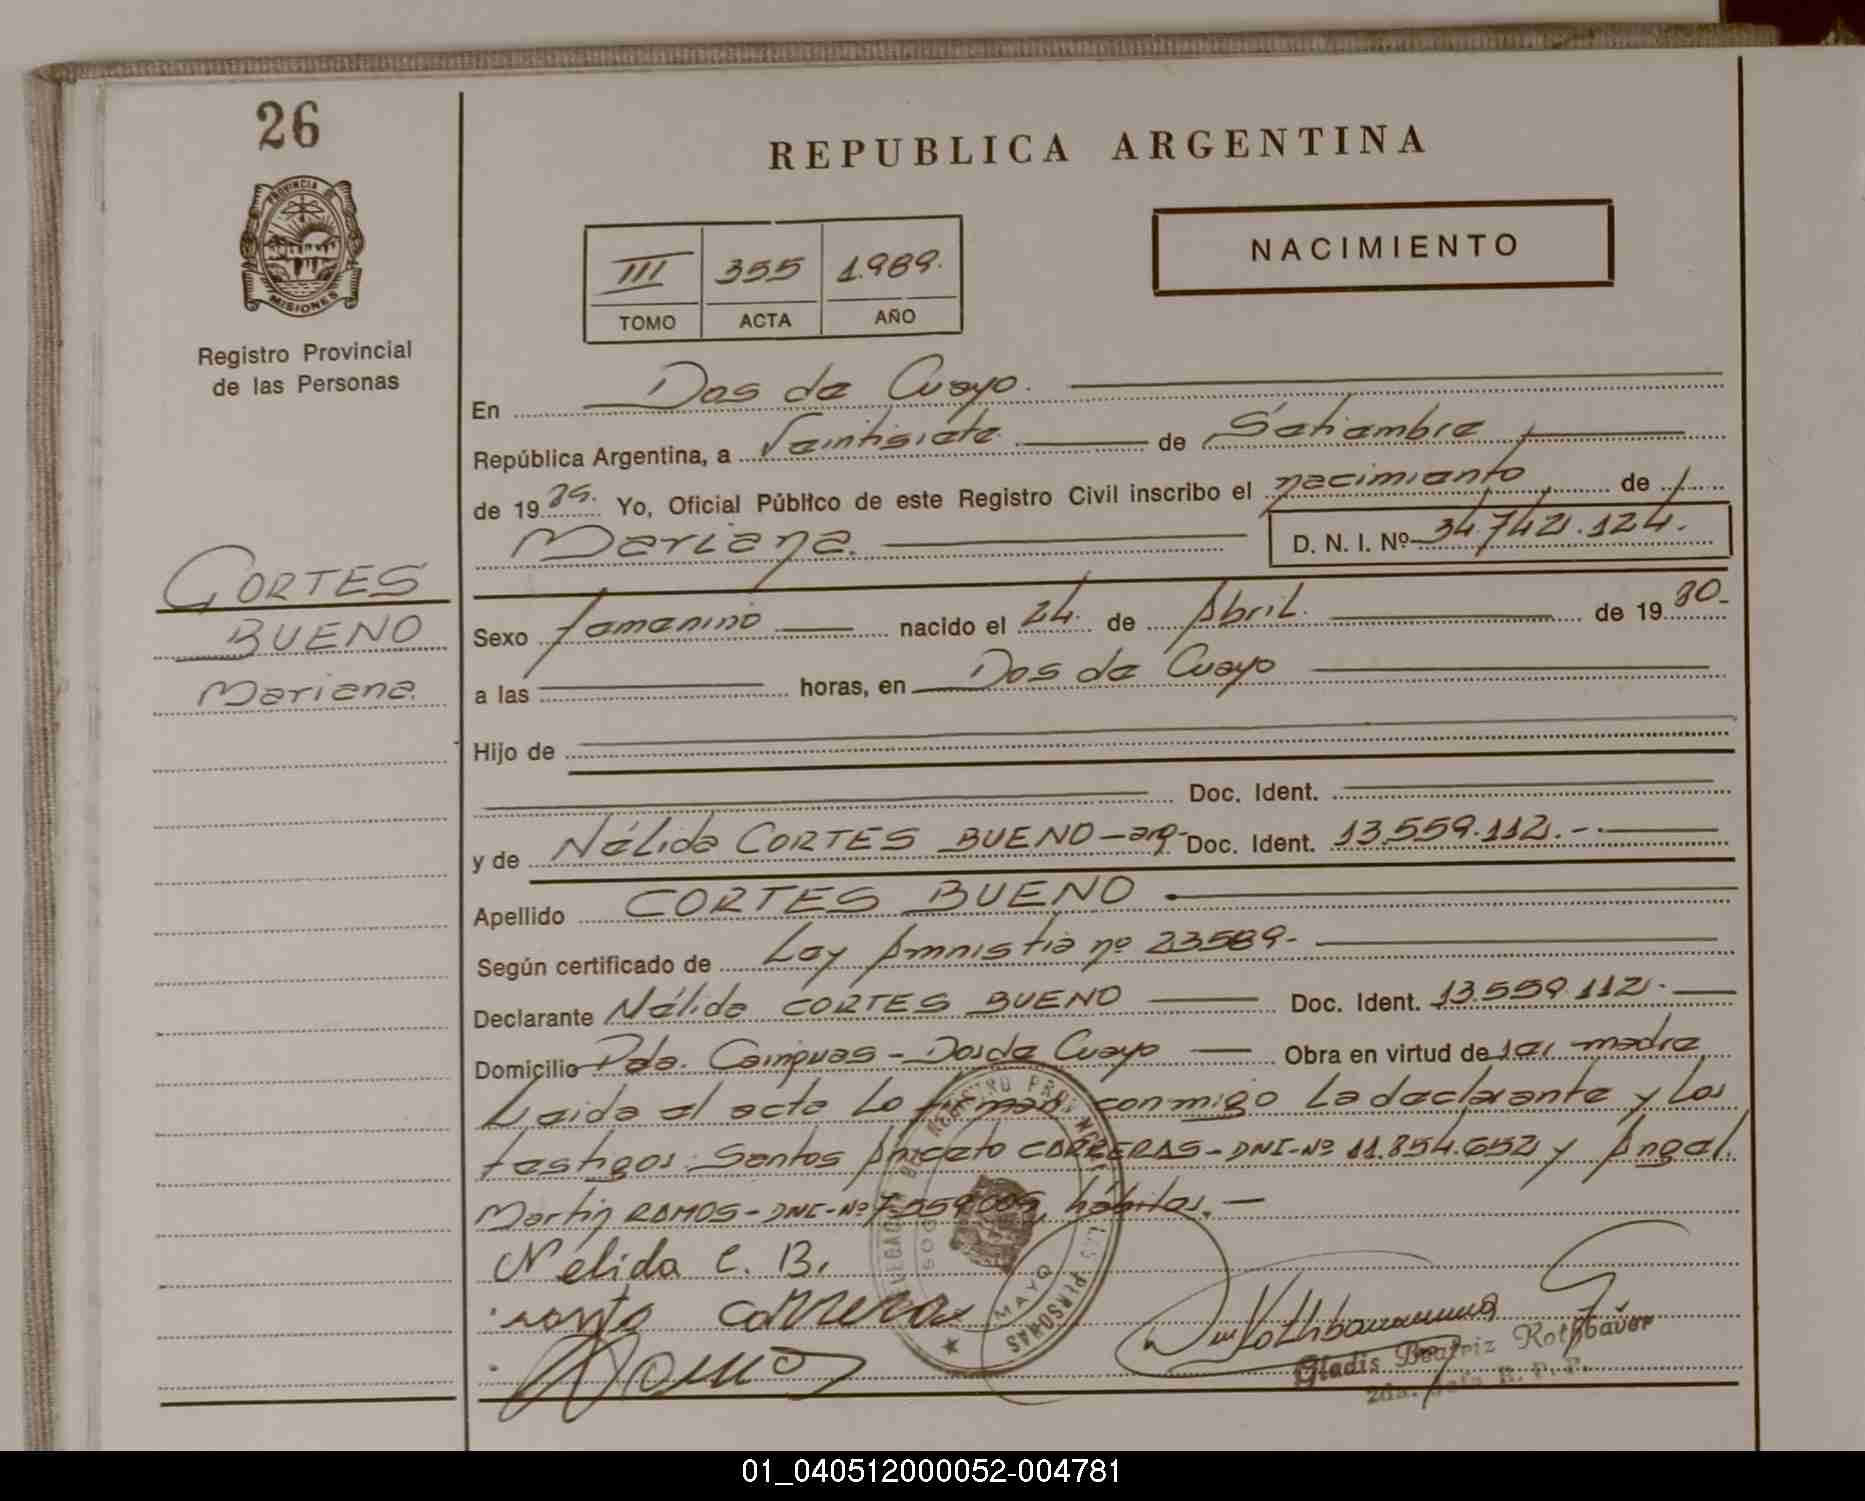 26
PROVINCIA DE
MISIONES
Registro Provincial
de las Personas
CORTES
BUENO
Mariana
REPUBLICA ARGENTINA
III 355 1.989.
TOMO ACTA AÑO
NACIMIENTO
En Dos de Mayo.
República Argentina, a Veintisiete de Setiembre
de 1989. Yo, Oficial Público de este Registro Civil inscribo el nacimiento de
Mariana. D. N. I. Nº 34.742.124.
Sexo femenino nacido el 24. de Abril. de 19
a las horas, en Dos de Mayo
Hijo de
Doc. Ident.
y de Nélida CORTES BUENO-arg- Doc. Ident. 13.559.112.-
Apellido CORTES BUENO
Según certificado de Ley Amnistia nº 23589-
Declarante Nélida CORTES BUENO Doc. Ident. 13.559.112.
Domicilio Pda. Campuas - Dos de Mayo Obra en virtud de ser madre
Leida el acta lo firman conmigo la declarante y los
testigos: Santos Aniceto CARRERAS-DNI-Nº 11.854.652 y Angel
Martin RAMOS-DNI-Nº 7.559.005, hábiles.-
Nelida C. B.
santo carreras
Ramos
Gladis Beatriz Rothbauer
REGISTRO PROVINCIAL DE LAS PERSONAS
MAYO
01_040512000052-004781